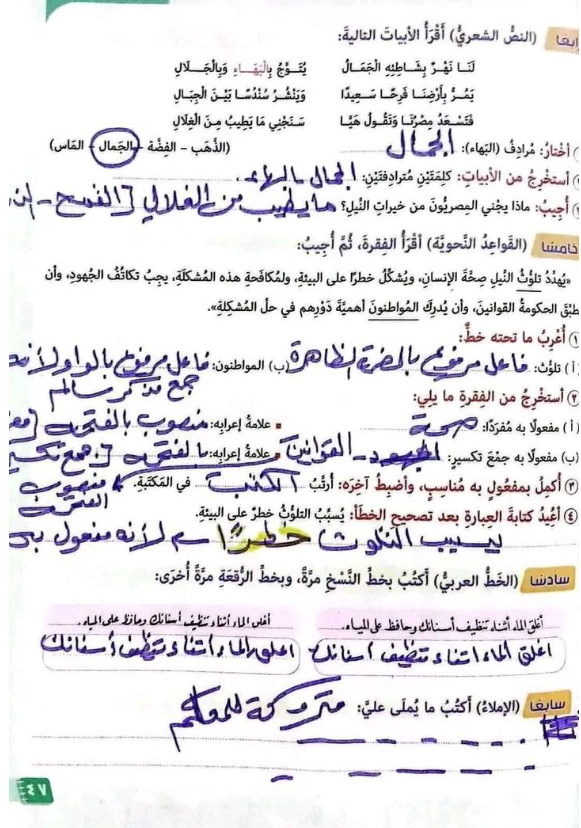 رابعًا (النصُّ الشعريُّ) أَقْرَأُ الأبياتَ التاليةَ:
لَنَا نَهْرٌ بِشَاطِئِهِ الْجَمَالُ يُتَوَّجُ بِالْبَهَاءِ وَبِالْجَلَالِ
يَمُرُّ بِأَرْضِنَا فَرِحًا سَعِيدًا وَيَنْشُرُ سُنْدُسًا بَيْنَ الْجِبَالِ
فَتَسْعَدُ مِصْرُنَا وَتَقُولُ هَيَّا سَنَجْنِي مَا يَطِيبُ مِنَ الْغِلَالِ
أختارُ: مُرادِفُ (البَهاء): الجمال (الذَّهَب - الفِضَّة - الجَمال - المَاس)
أستخرجُ من الأبياتِ: كلِمَتَيْنِ مُترادِفتَيْنِ: الجمال بالبهاء.
أُجيبُ: ماذا يجْني المِصريُّونَ من خيراتِ النِّيلِ؟ ما يطيب من الغلال [القمح -
خامسًا (القَواعِدُ النَّحويَّة) أَقْرَأُ الفِقرةَ، ثُمَّ أُجيبُ:
«يُهَدِّدُ تلوُّثُ النِّيلِ صِحَّةَ الإنسانِ، ويُشكِّلُ خطرًا على البيئةِ، ولمُكافَحةِ هذه المُشكلَةِ، يجِبُ تكاتُفُ الجُهودِ، وأن
تُطبِّقَ الحكومةُ القوانينَ، وأن يُدرِكَ المُواطنونَ أهميَّةَ دَوْرِهم في حلِّ المُشكِلةِ».
١ أُعْرِبُ ما تحته خطٌّ:
(أ) تلوُّث: فاعل مرفوع بالضمة الظاهرة (ب) المواطنون: فاعل مرفوع بالواو لأنه
جمع مذكر سالم
٢ أستخرِجُ من الفِقرةِ ما يلي:
(أ) مفعولًا به مُفرَدًا: صحة علامةُ إعرابِه: منصوب بالفتحة
(ب) مفعولًا به جمْعَ تكسيرٍ: القوانين علامةُ إعرابِه: بالفتحة [جمع تكسير
٣ أُكمِلُ بمفعُولٍ به مُناسِبٍ، وأضبِطُ آخِرَه: أُرتِّبُ الكتب في المَكتبَةِ. منصوب
الفتحة
٤ أُعِيدُ كتابةَ العِبارةِ بعد تصحيحِ الخطأ: يُسبِّبُ التلوُّثُ خطرٌ على البيئةِ.
يسبب التلوث خطرًا لأنه مفعول به
سادسًا (الخَطُّ العربيُّ) أَكتُبُ بخطِّ النَّسْخِ مرَّةً، وبخطِّ الرُّقعَةِ مرَّةً أُخرَى:
أغلق الماء أثناء تنظيف أسنانك وحافظ على المياه. أغلق الماء أثناء تنظيف أسنانك وحافظ على المياه.
اغلق الماء اثناء تنظيف أسنانك اغلق الماء اثناء تنظيف أسنانك
سابعًا (الإملاءُ) أكتُبُ ما يُملَى عليَّ: متروكة للمعلم
٤٧